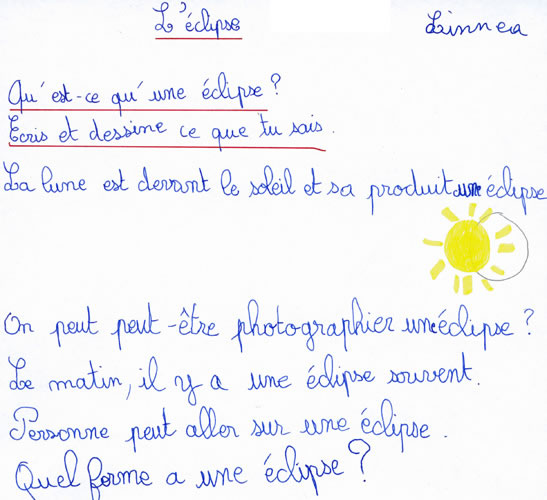 L'éclipse
Linnea
Qu'est-ce qu'une éclipse ?
Ecris et dessine ce que tu sais.
La lune est devant le soleil et sa produit une éclipse
On peut peut-être photographier une éclipse ?
Le matin, il y a une éclipse souvent.
Personne peut aller sur une éclipse.
Quel forme a une éclipse ?